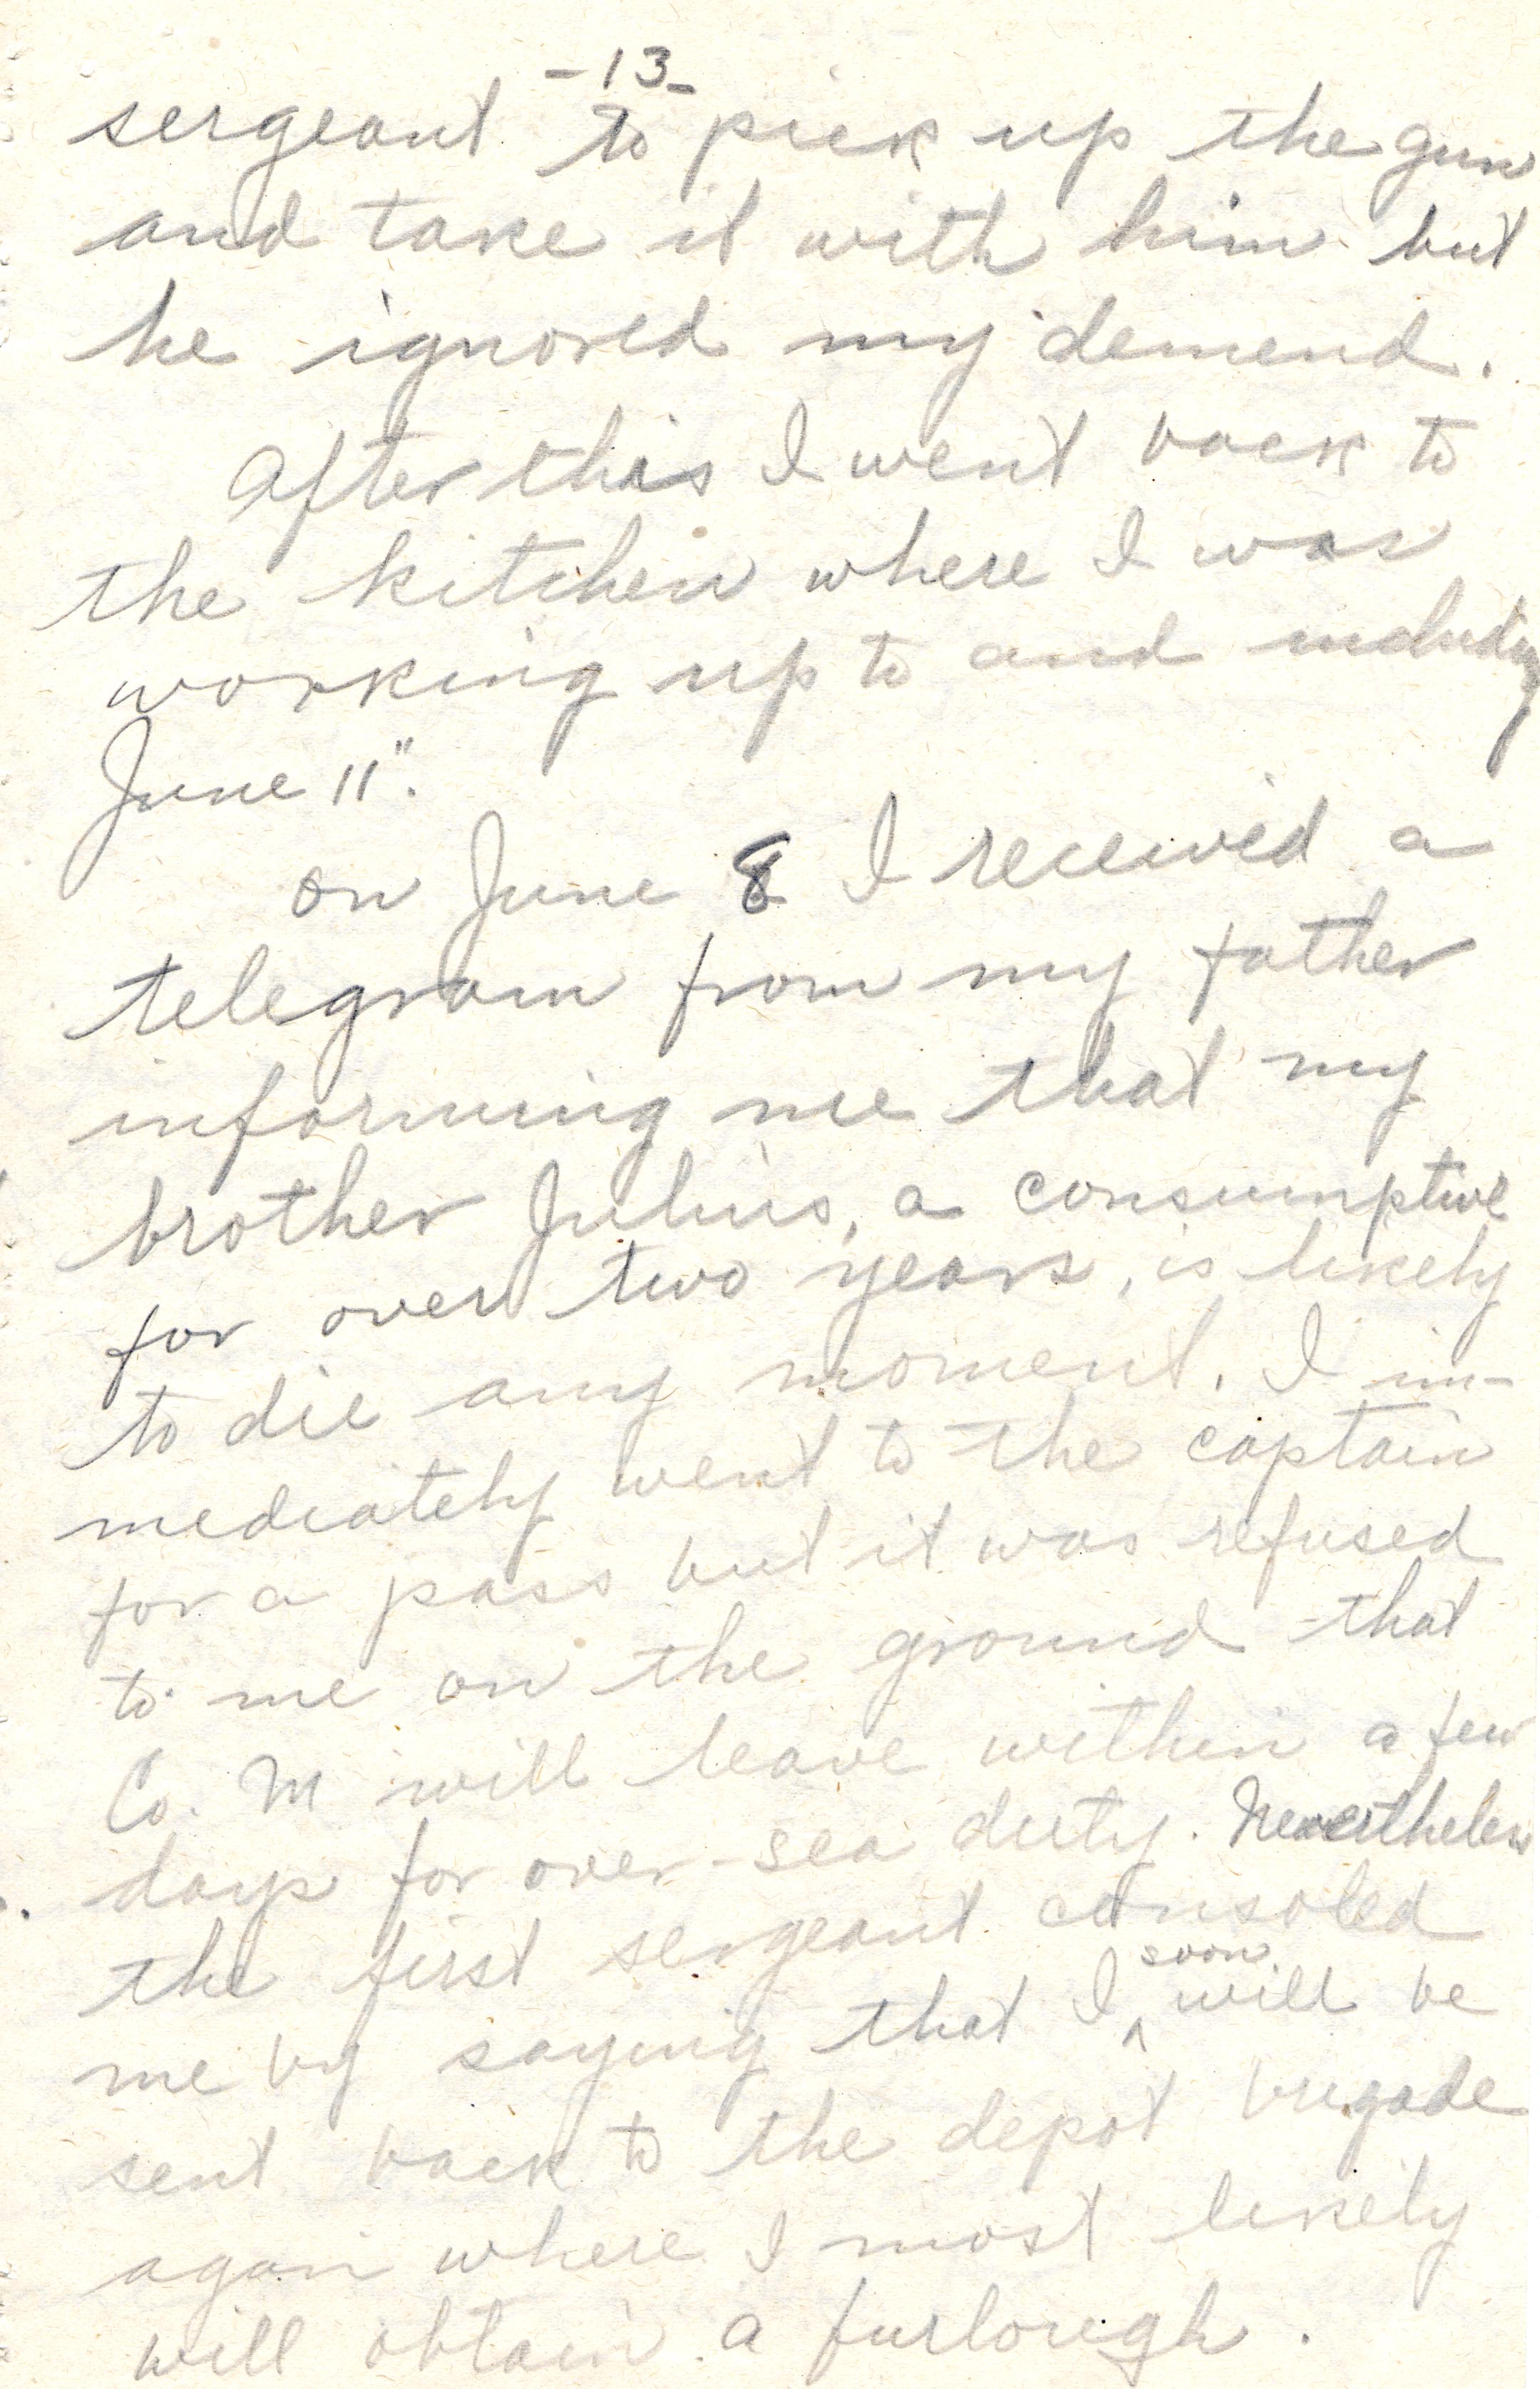 -13-
sergeant to pick up the gun
and take it with him but
he ignored my demend.
After this I went back to
the kitchen where I was
working up to and including
June 11".
on June 8 I received a
telegram from my father
informing me that my
brother Julius, a consumptive
for over two years, is likely
to die any moment. I im-
mediately went to the captain
for a pass but it was refused
to me on the ground that
Co. M will leave within a few
days for over-sea duty. Nevertheless
the first sergeant consoled
soon
me by saying that I ^ will be
sent back to the depot brigade
again where I most likely
will obtain a furlough.